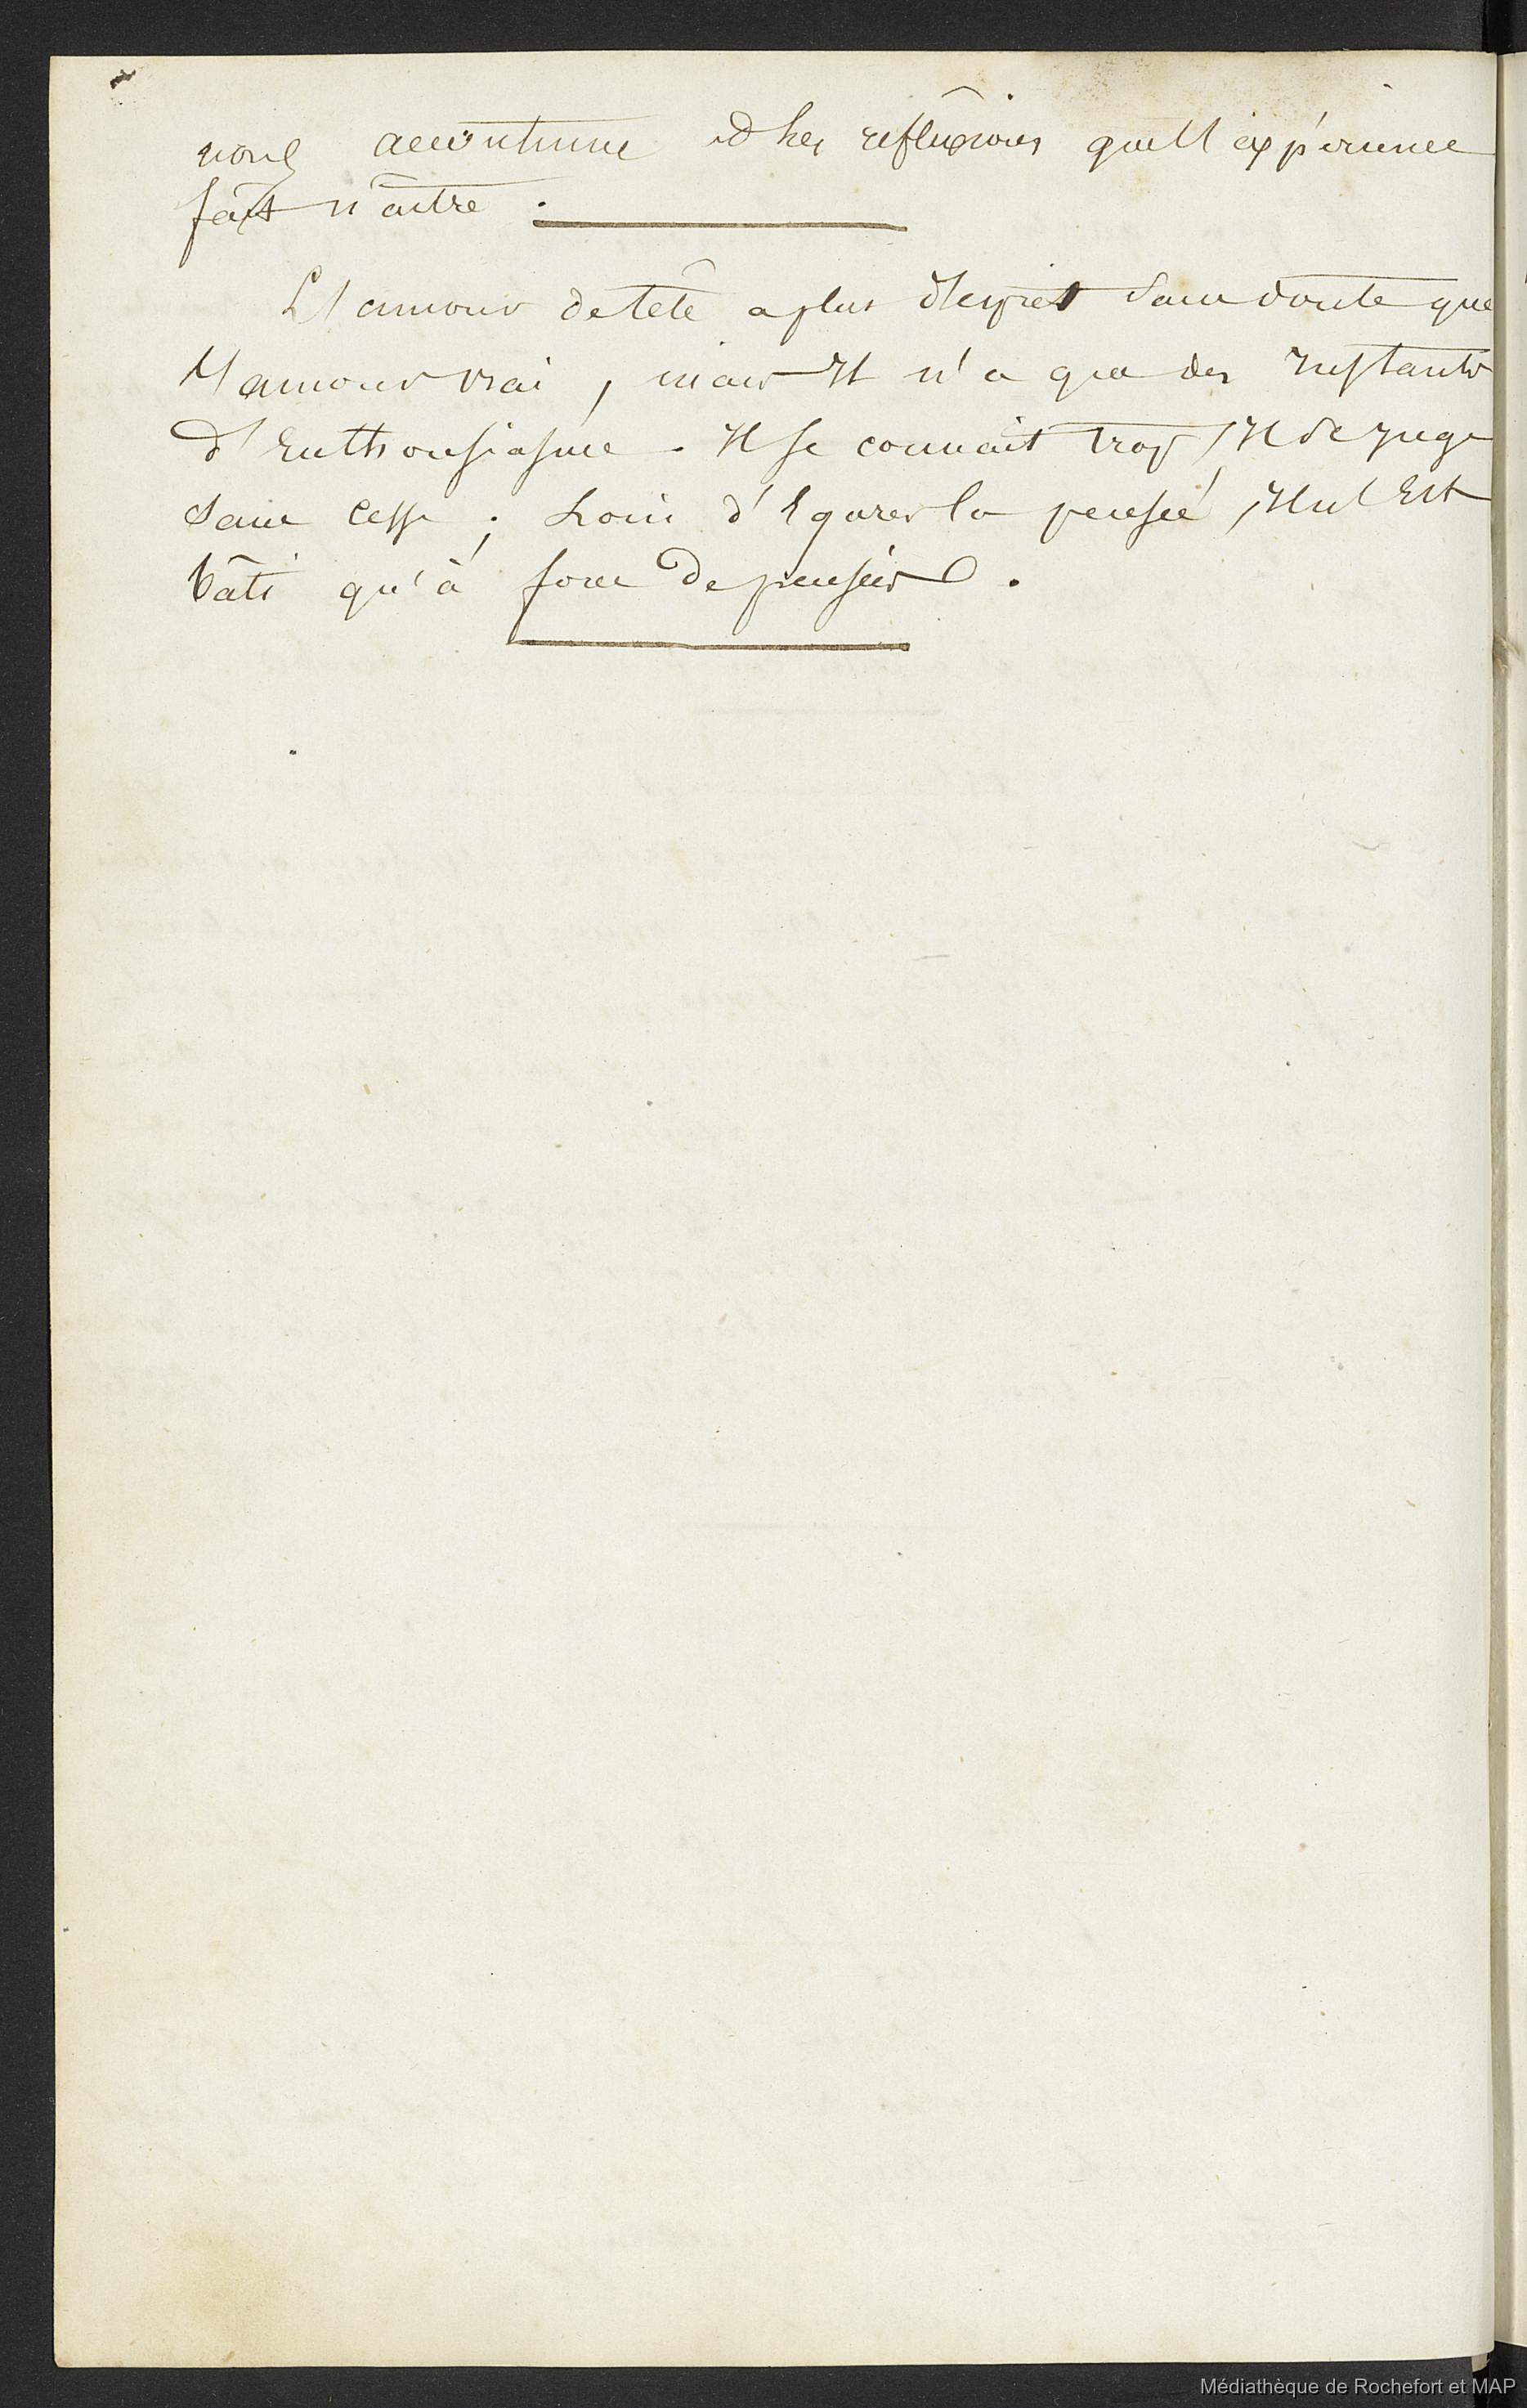 nous accoutume des réflexions que l'expérience
fait naître .
L'amour de tête a plus d'esprit sans doute que
l'amour vrai , mais Il n'a que des Instants
d'Enthousiasme . Il se connait trop , Il se juge
sans cesse ; Loin d'Egarer la pensée , Il n'Est
bâti qu'à force de pensées .
Médiathèque de Rochefort et MAP